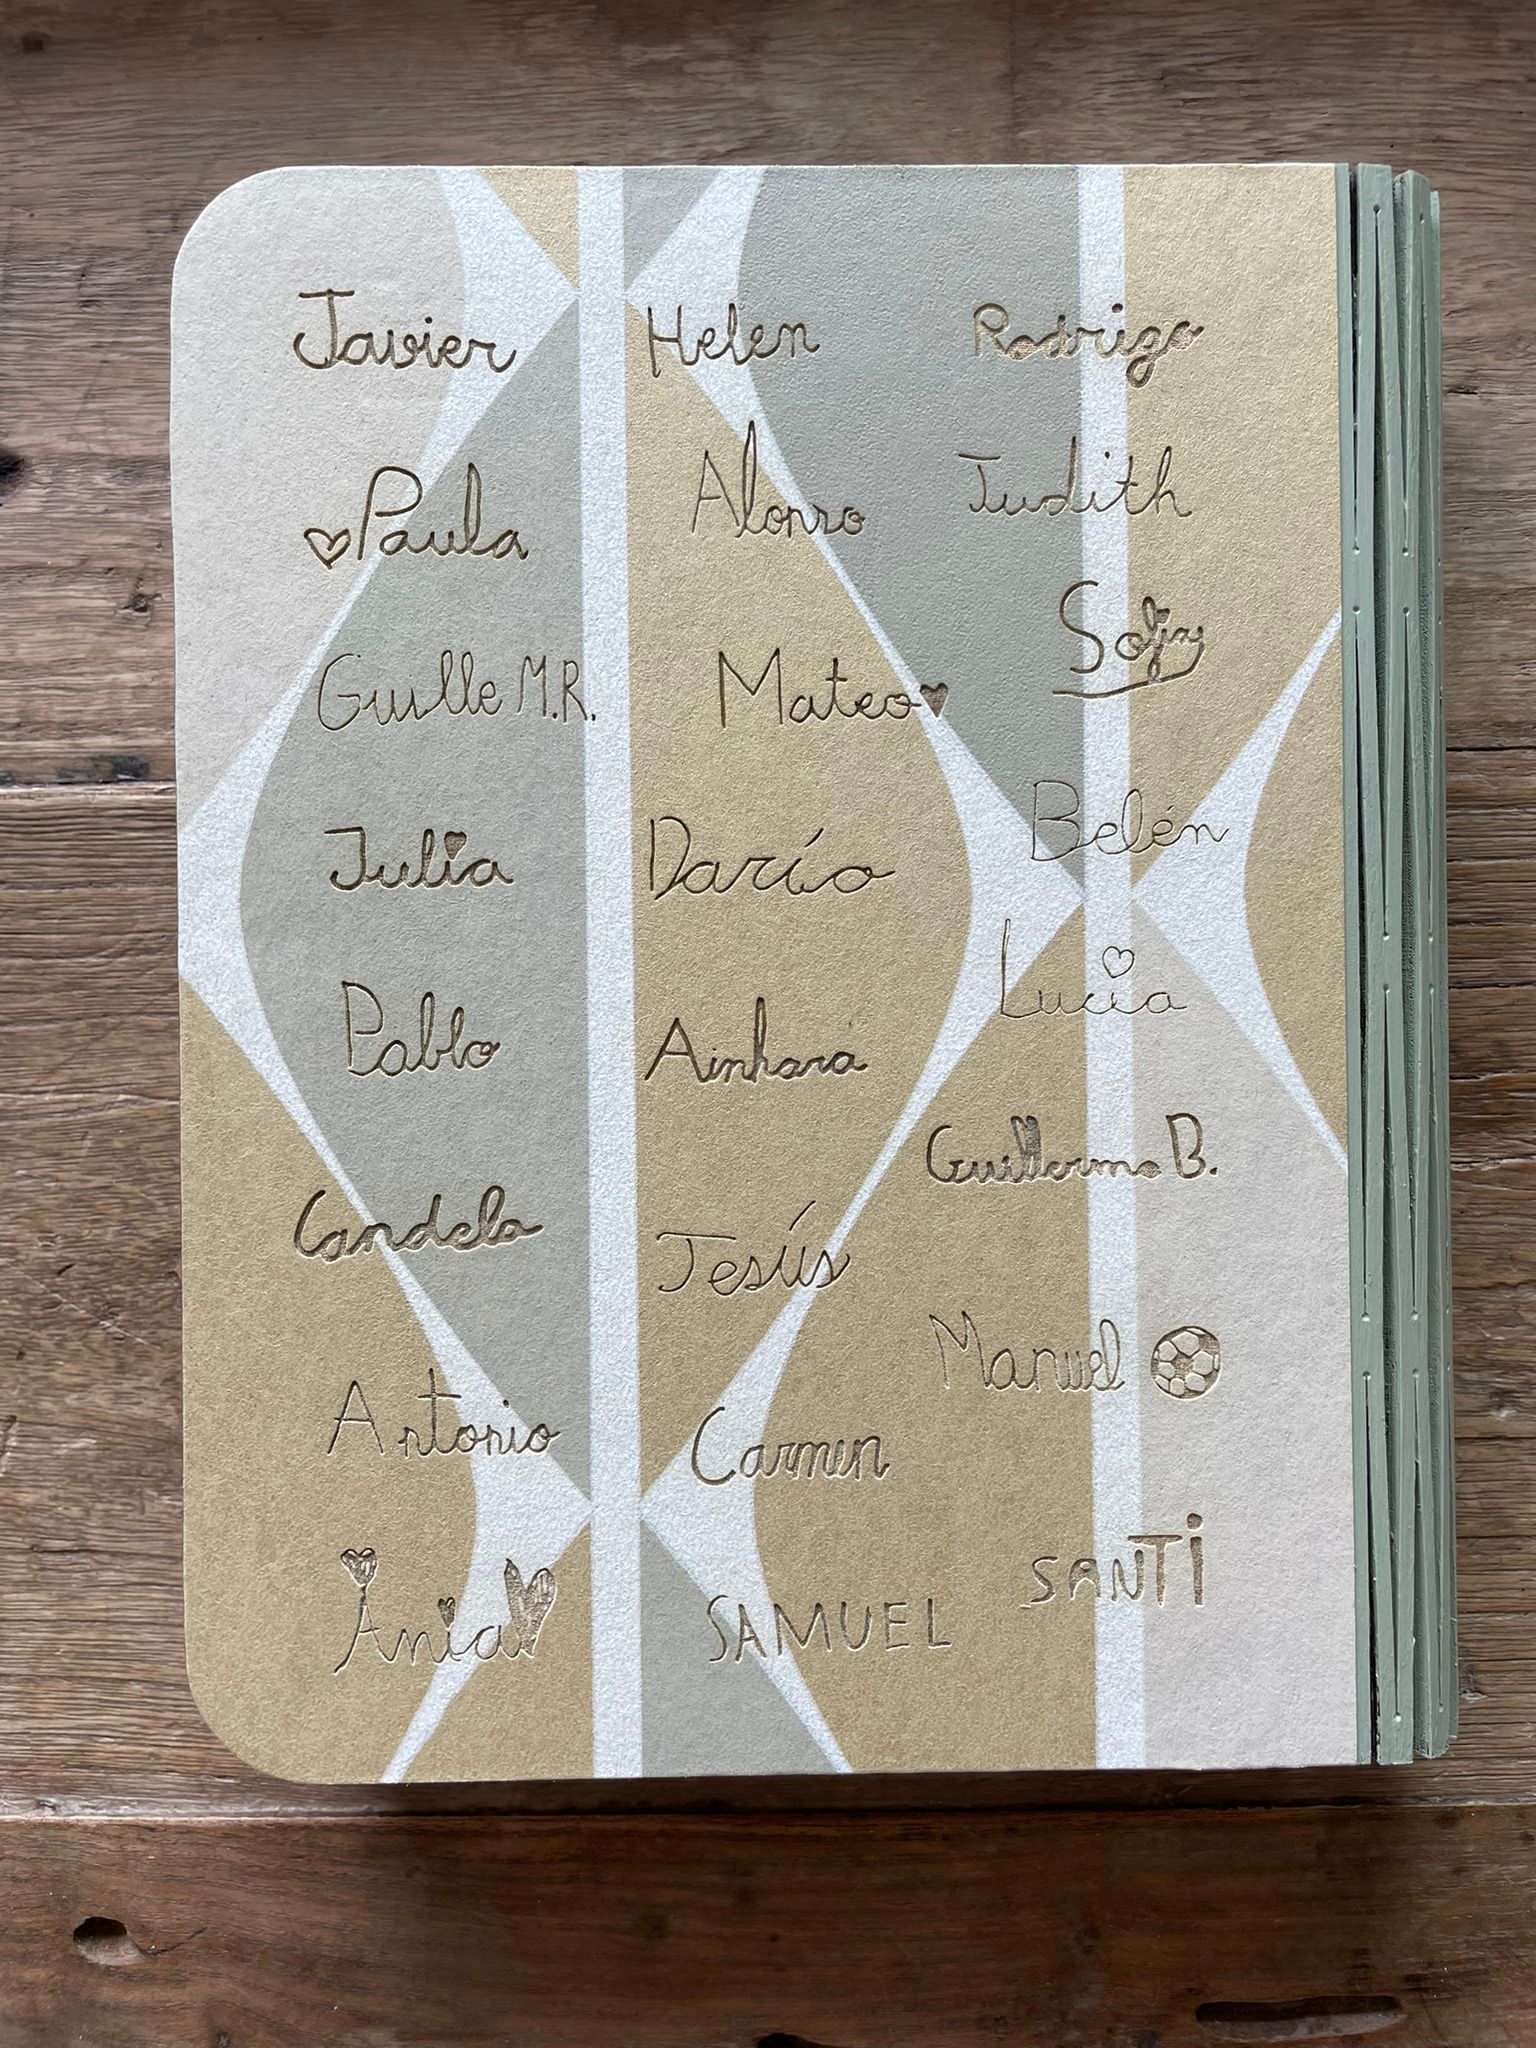 Javier
Paula
Guille M.R.
Julia
Pablo
Candela
Antonio
Ania
Helen
Alonso
Mateo
Darío
Ainhara
Jesús
Carmen
SAMUEL
Rodrigo
Judith
Sofia
Belén
Lucia
Guillermo B.
Manuel
SANTi